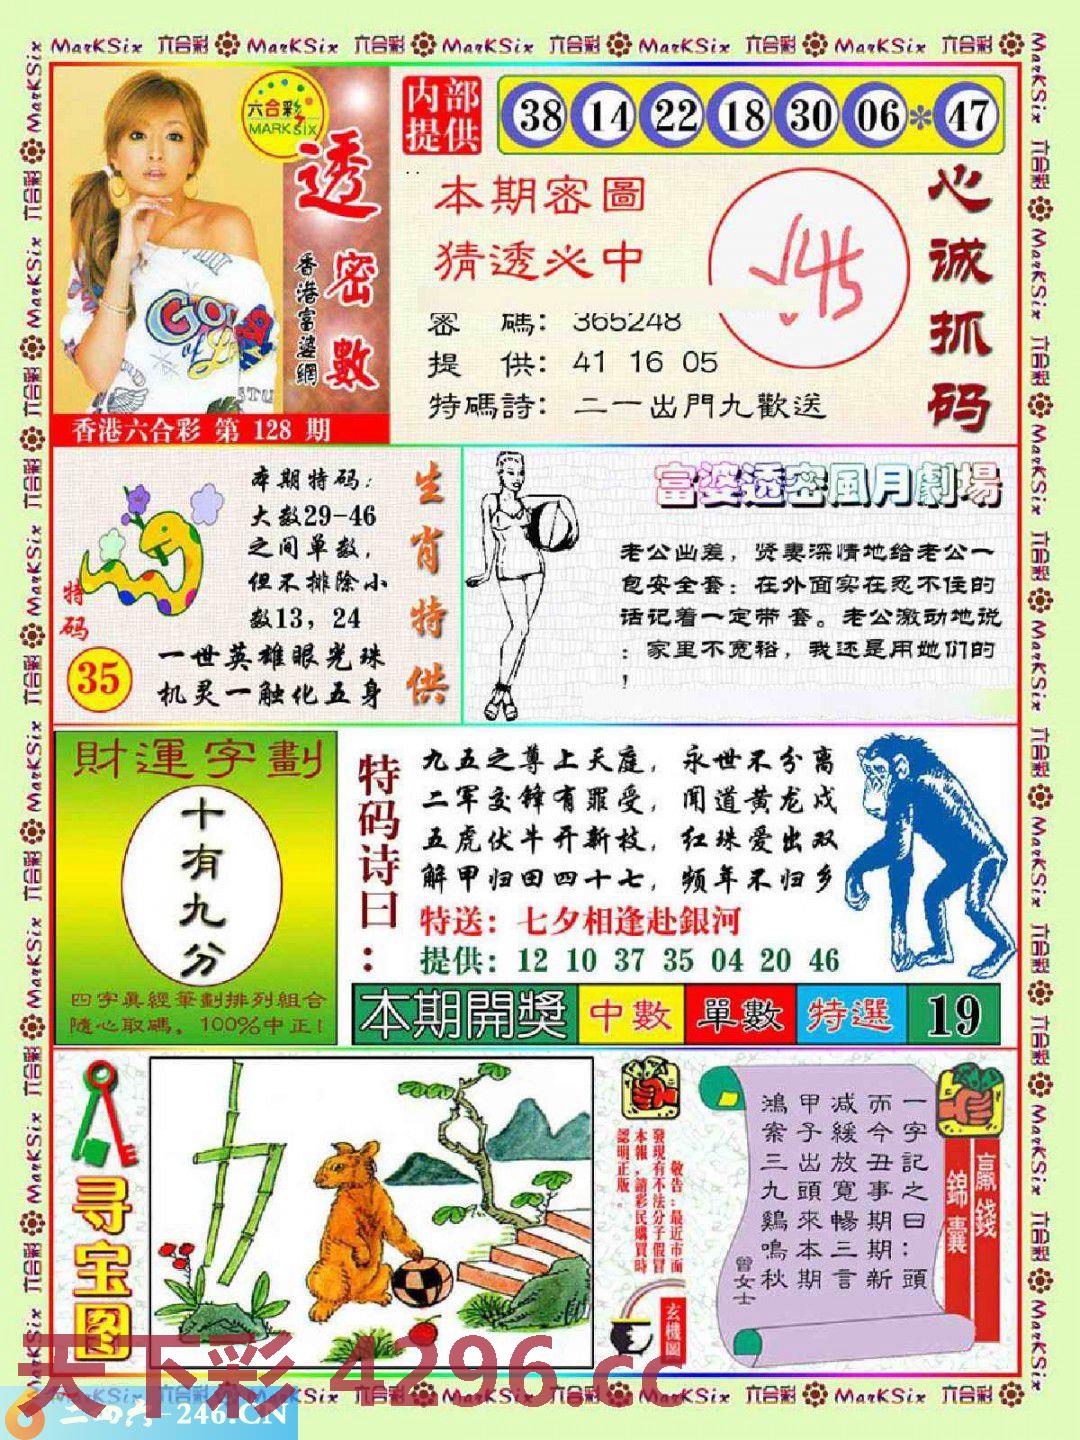 MarKSix 六合彩 MarKSix 六合彩 MarKSix 六合彩 MarKSix 六合彩 MarKSix 六合彩
六合彩
MARK SIX
透密數
香港富婆網
香港六合彩 第 128 期
内部
提供
38 14 22 18 30 06 * 47
本期密圖
猜透必中
密 碼: 365248
提 供: 41 16 05
特碼詩: 二一出門九歡送
心诚抓码
本期特码:
大数29-46
之间单数,
但不排除小
数13, 24
特码
35
一世英雄眼光珠
机灵一触化五身
生肖特供
富婆透密風月劇場
老公出差, 贤妻深情地给老公一
包安全套: 在外面实在忍不住的
话记着一定带 套。老公激动地说
: 家里不宽裕, 我还是用她们的
!
財運字劃
十有九分
四字真經筆劃排列組合
隨心取碼, 100%中正!
特码诗曰:
九五之尊上天庭, 永世不分离
二军交锋有罪受, 闻道黄龙戍
五虎伏牛开新枝, 红珠爱出双
解甲归田四十七, 频年不归乡
特送: 七夕相逢赴銀河
提供: 12 10 37 35 04 20 46
本期開獎 中數 單數 特選 19
寻宝图
敬告:最近市面
發現有不法分子假冒
本報,請彩民購買時
認明正版。
玄機圖
贏錢
錦囊
一字記之曰:頭
而今丑事期期新
減緩放寬暢三言
甲子出頭來本期
鴻案三九鷄鳴秋
曾女士
天下彩 4296.cc
二四六-246.CN
MarKSix 六合彩 MarKSix 六合彩 MarKSix 六合彩 MarKSix 六合彩